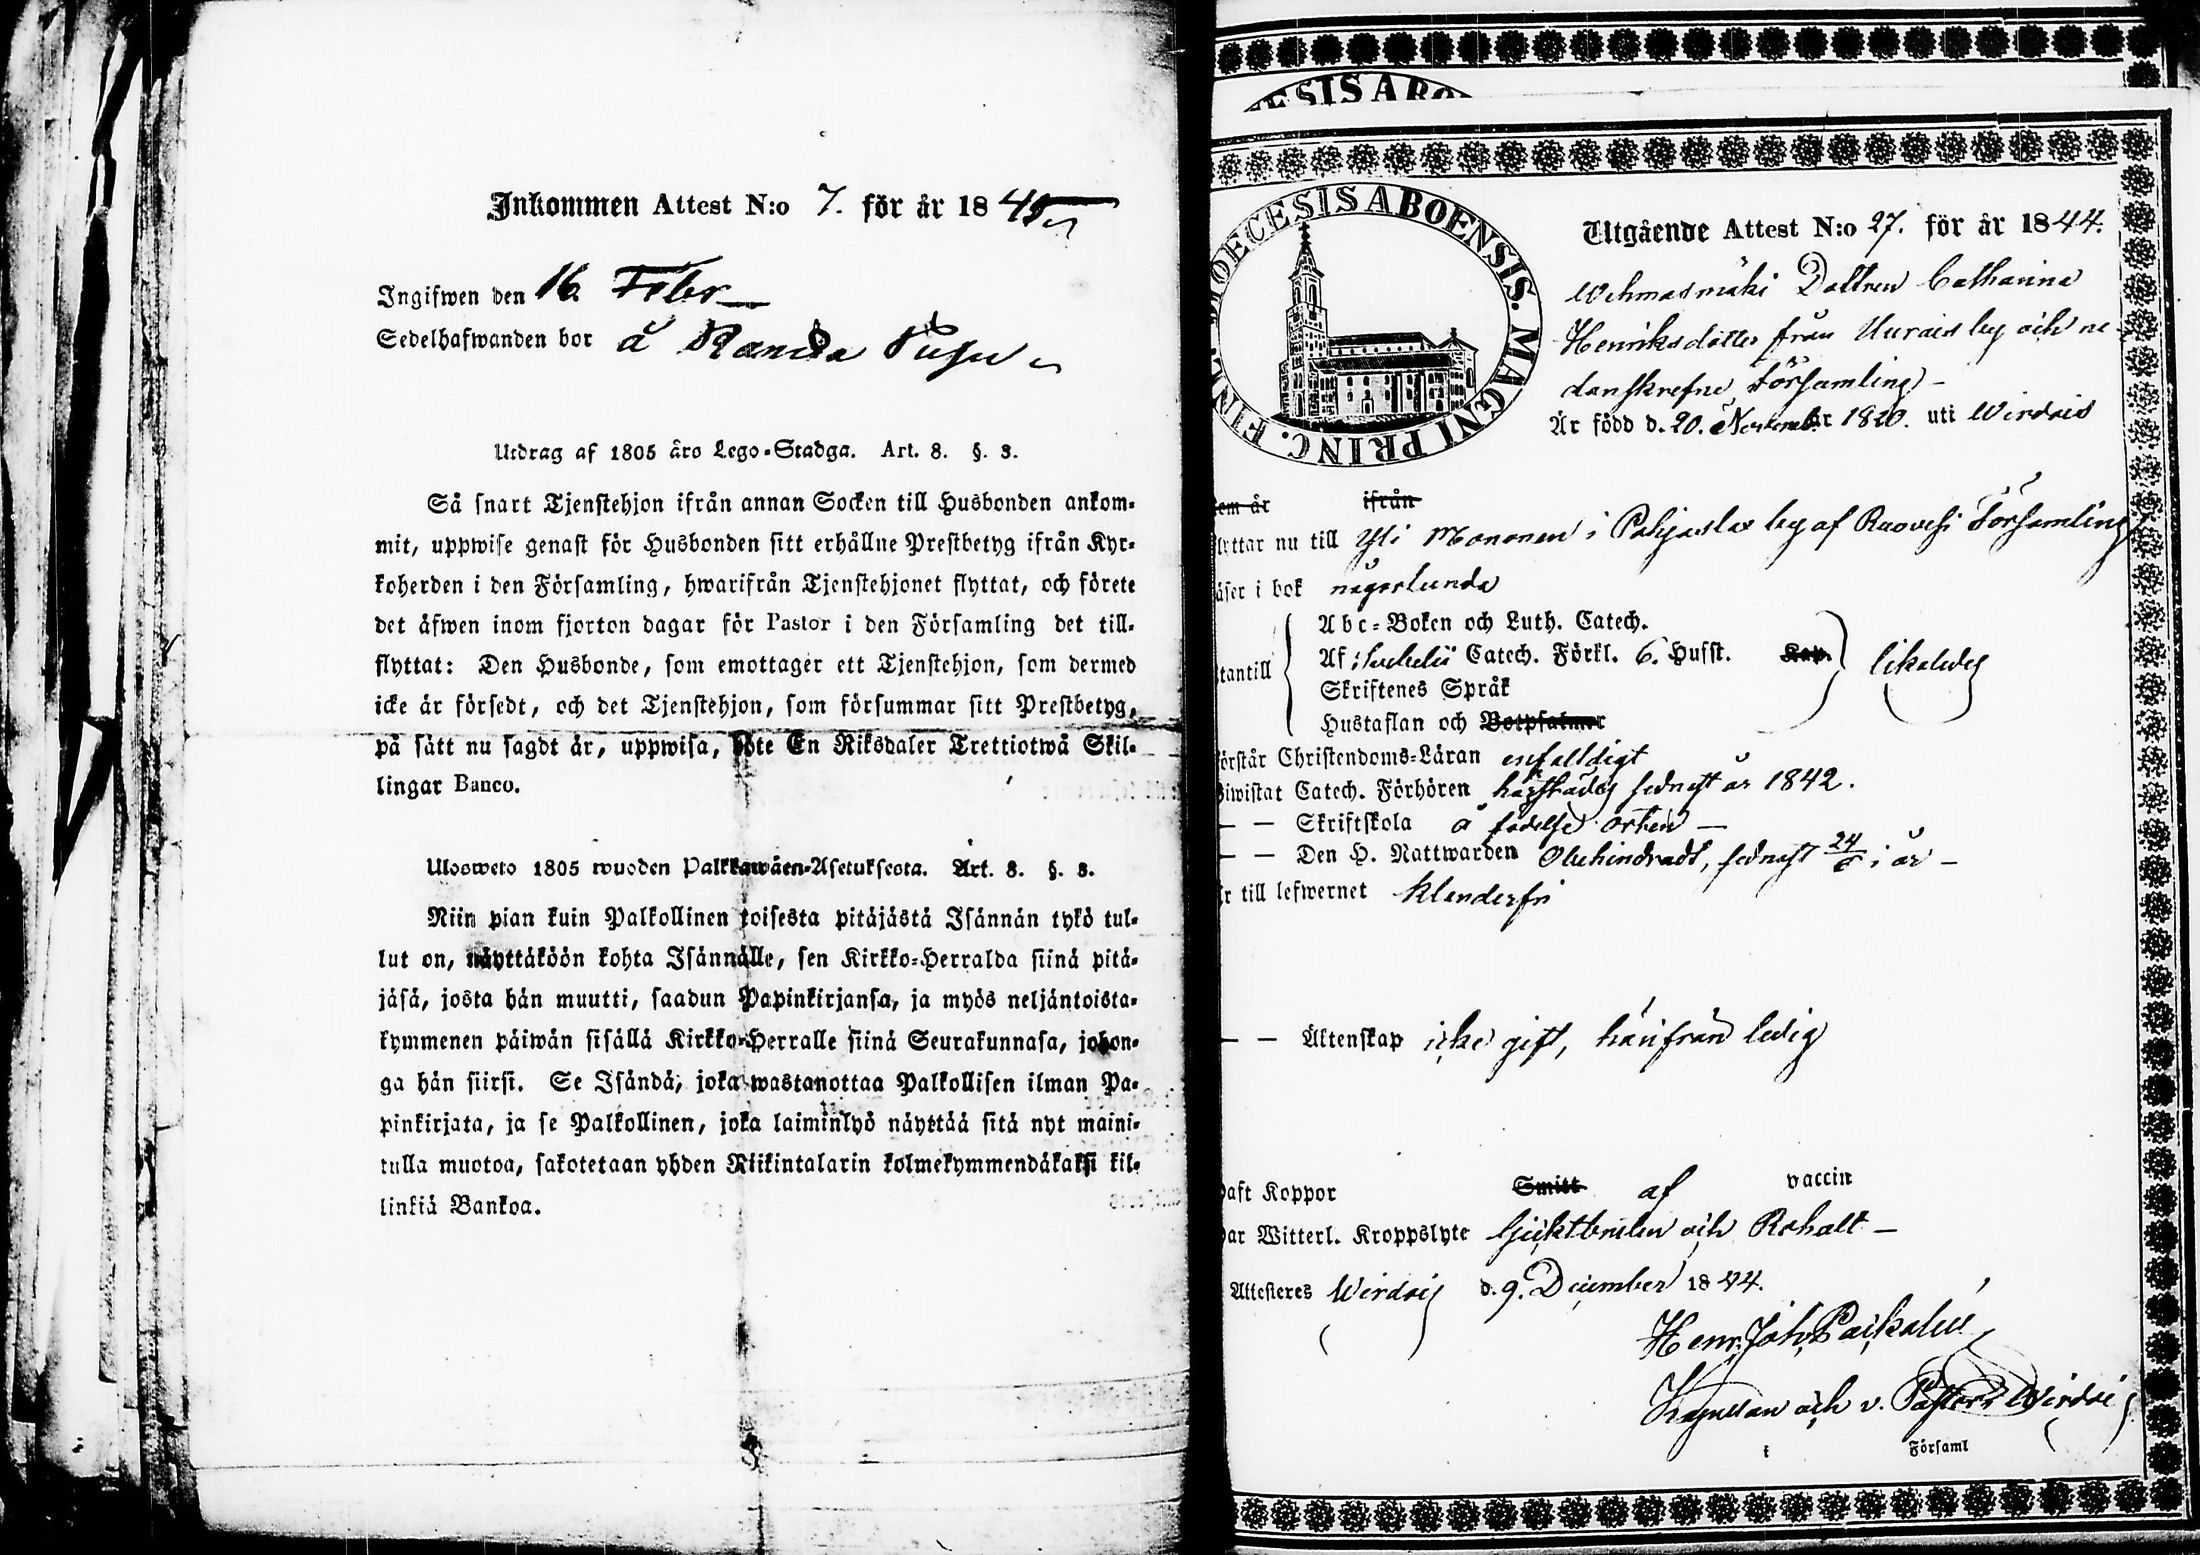 Inkommen Attest N:o 7. för år 1845
Ingifwen den 16 Febr
Sedelhafwanden bor å
Utdrag af 1805 års Lego-Stadga. Art. 8. §. 3.
Så snart Tjenstehjon ifrån annan Socken till Husbonden ankom-
mit, uppwise genast för Husbonden sitt erhållne Prestbetyg ifrån Kyr-
koherden i den Församling, hwarifrån Tjenstehjonet flyttat, och förete
det äfwen inom fjorton dagar för Pastor i den Församling det till-
flyttat: Den Husbonde, som emottager ett Tjenstehjon, som dermed
icke är försedt, och det Tjenstehjon, som försummar sitt Prestbetyg,
på sätt nu sagdt är, uppwisa, böte En Riksdaler Trettiotwå Skil-
lingar Banco.
Ulosweto 1805 wuoden Palkkawäen-Asetuksesta. Art. 8. §. 3.
Niin pian kuin Palkollinen toisesta pitäjästä Isännän tykö tul-
lut on, näyttäköön kohta Isännälle, sen Kirkko-Herralda siinä pitä-
jäsä, josta hän muutti, saadun Papinkirjansa, ja myös neljäntoista-
kymmenen päiwän sisällä Kirkko-Herralle siinä Seurakunnasa, johon-
ga hän siirsi. Se Isändä, joka wastanottaa Palkollisen ilman Pa-
pinkirjata, ja se Palkollinen, joka laiminlyö näyttää sitä nyt maini-
tulla muotoa, sakotetaan yhden Riikintalarin kolmekymmendäkaksi kil-
linkiä Bankoa.
ESIS ABO
DIOECESIS ABOENSIS. MAGNI PRINC. FINL.
Utgående Attest N:o 27. för år 1844.
Wehmasmäki Dottren Catharina
Henriksdotter från by och ne-
danskrefne Församling -
Är född d. 20. November 1820. uti Wirdois
som är ifrån
flyttar nu till Yli Mononen i Pohjaslax by af Ruovesi Församling
läser i bok någorlunda
Abc-Boken och Luth. Catech.
Af Svebelii Catech. Förkl. 6. Husst. Kap.
utantill likaledes
Skriftenes Språk
Hustaflan och Botpsalmer
förstår Christendoms-Läran enfaldigt
Biwistat Catech. Förhören härstädes sednast år 1842.
— — Skriftskola å födelse orten —
— — Den H. Nattwarden Obehindradt, sednast 24/6 i år —
är till lefwernet klanderfri
— — Äktenskap icke gift, härifrån ledig
haft Koppor Smitt af vaccin
har Witterl. Kroppslyte och
Attesteres Wirdois d. 9. December 1844.
Henr. Joh.
Kapellan och v. Pastor i Wirdois
Församl